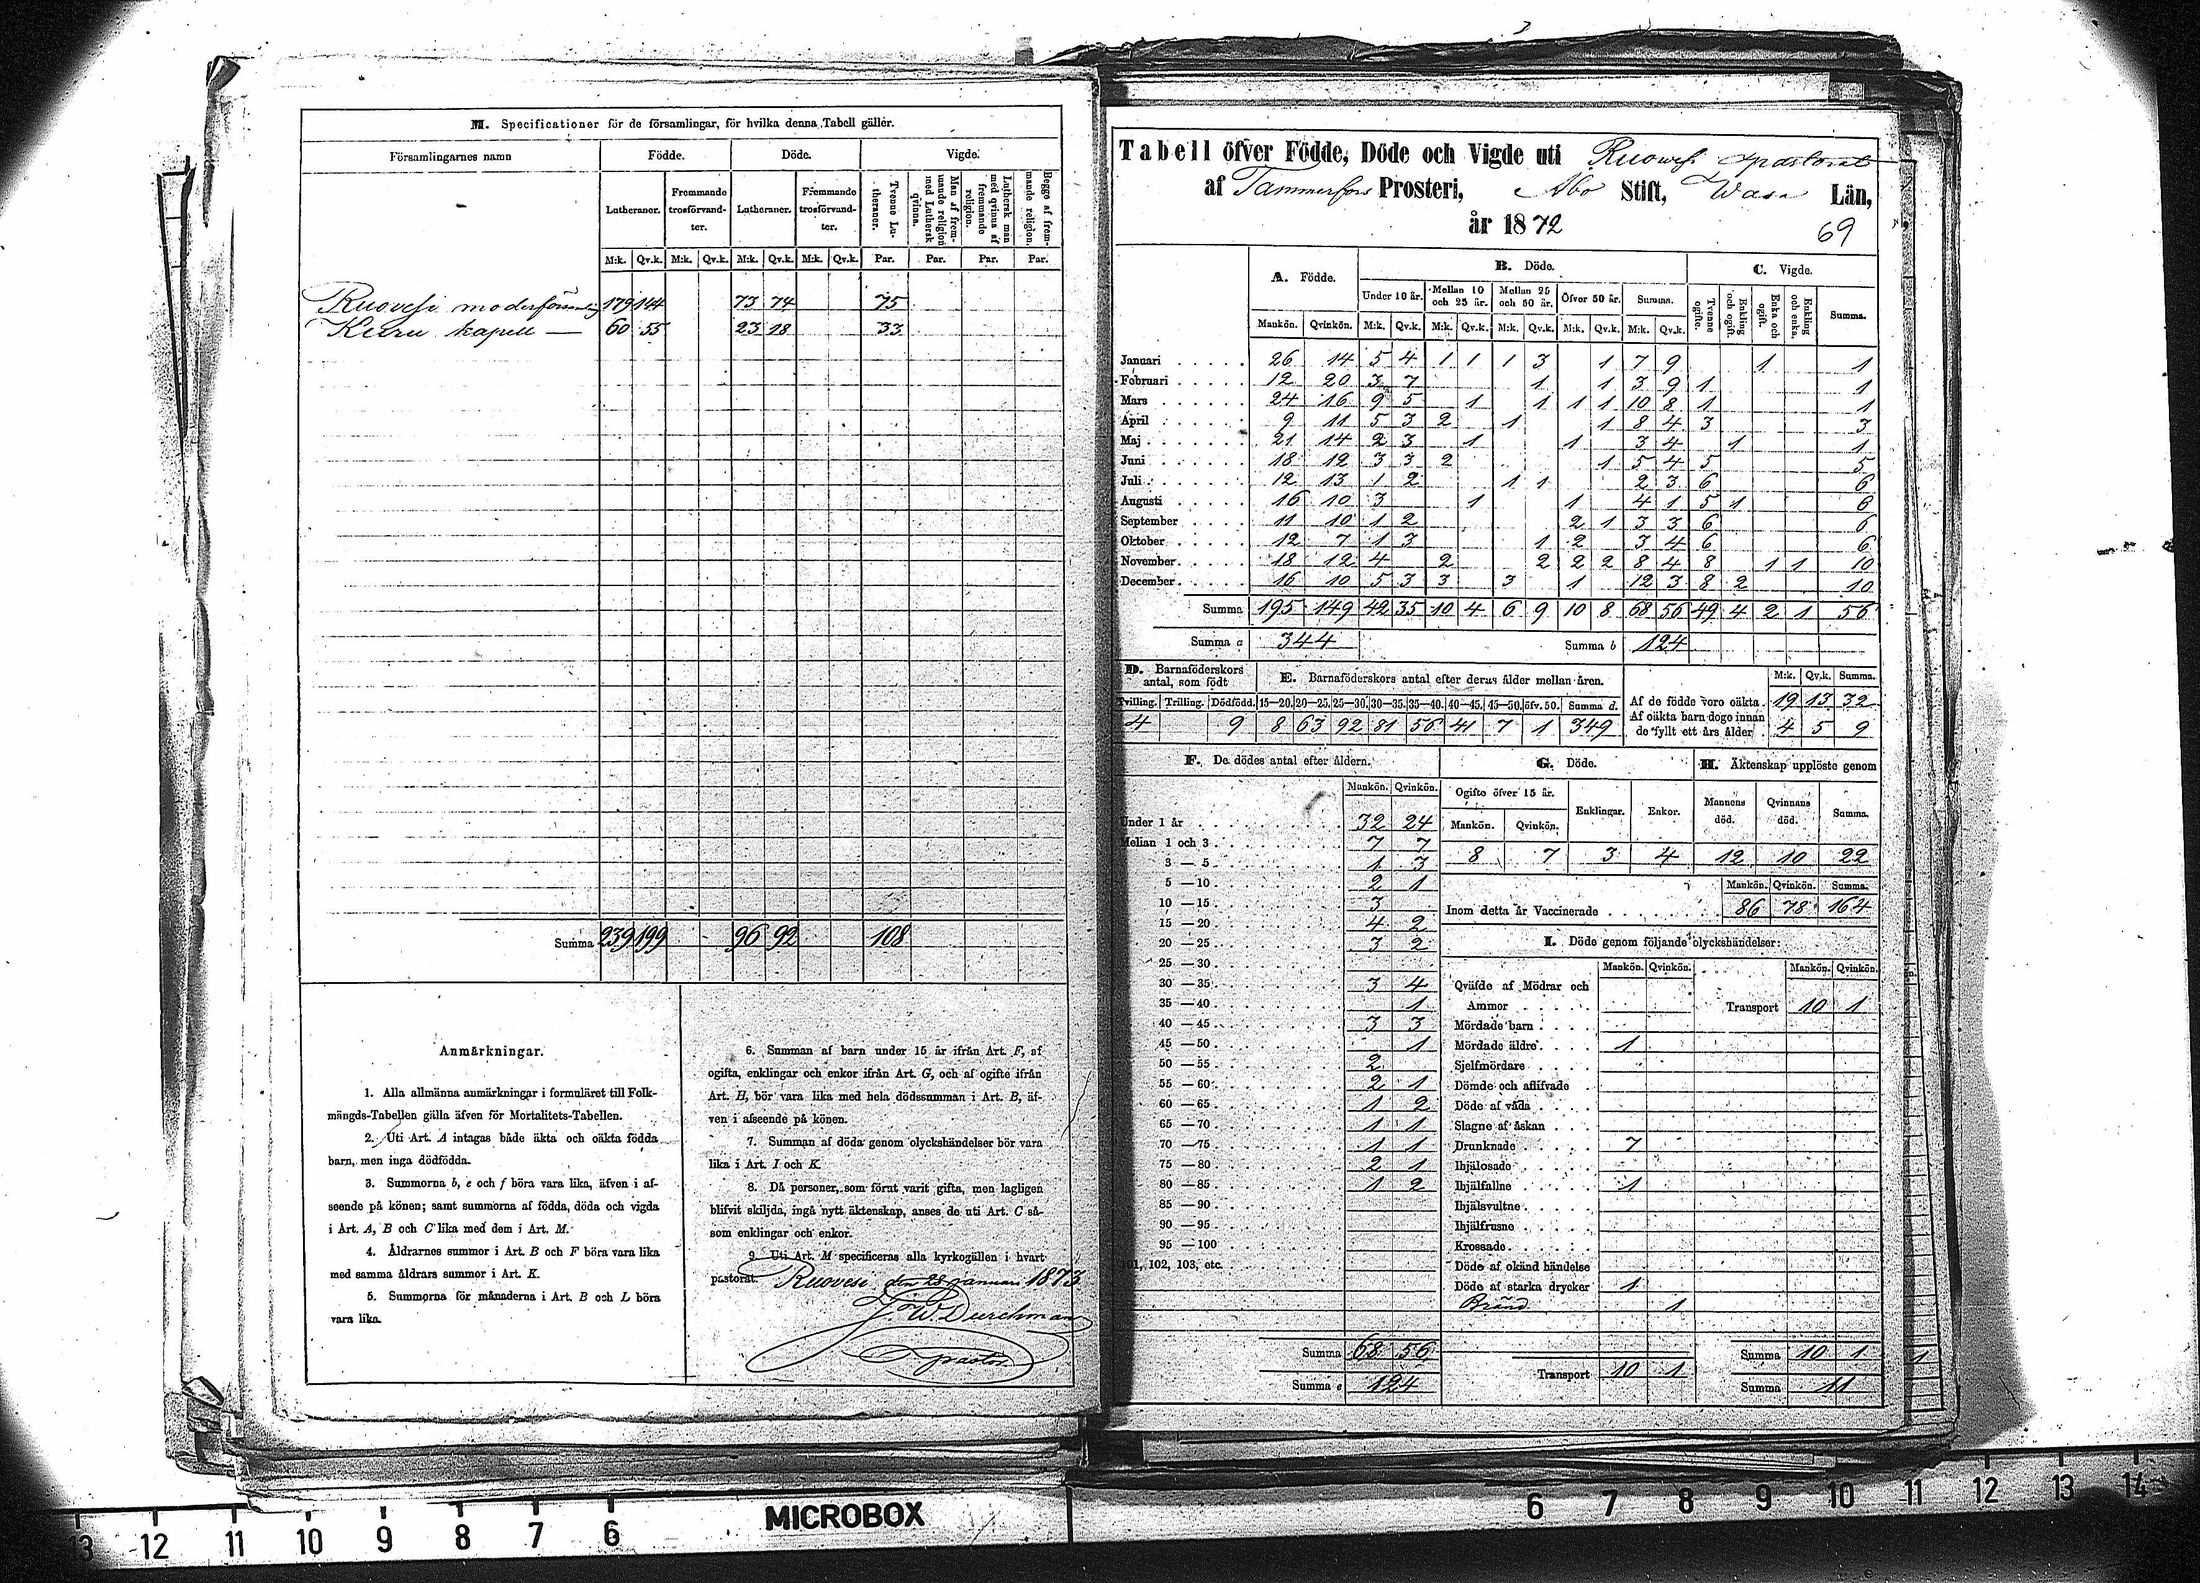 M. Specificationer för de församlingar, för hvilka denna Tabell gäller.
Församlingarnes namn Födde. Döde. Vigde.
Lutheraner. Fremmande trosförvandter. Lutheraner. Fremmande trosförvandter. Tvenne Lutheraner. Man af fremmande religion med Luthersk qvinna. Luthersk man med qvinna af fremmande religion. Begge af fremmande religion.
M:k. Qv.k. M:k. Qv.k. M:k. Qv.k. M:k. Qv.k. Par. Par. Par. Par.
Ruovesi moderförsamling 179 144 73 74 75
Kuru kapell — 60 55 23 18 33
Summa 239 199 96 92 108
Anmärkningar.
1. Alla allmänna anmärkningar i formuläret till Folk-
mängds-Tabellen gälla äfven för Mortalitets-Tabellen.
2. Uti Art. A intagas både äkta och oäkta födda
barn, men inga dödfödda.
3. Summorna b, e och f böra vara lika, äfven i af-
seende på könen; samt summorna af födda, döda och vigda
i Art. A, B och C lika med dem i Art. M.
4. Åldrarnes summor i Art. B och F böra vara lika
med samma åldrars summor i Art. K.
5. Summorna för månaderna i Art. B och L böra
vara lika.
6. Summan af barn under 15 år ifrån Art. F, af
ogifta, enklingar och enkor ifrån Art. G, och af ogifte ifrån
Art. H, bör vara lika med hela dödssumman i Art. B, äf-
ven i afseende på könen.
7. Summan af döda genom olyckshändelser bör vara
lika i Art. I och K.
8. Då personer, som förut varit gifta, men lagligen
blifvit skiljda, ingå nytt äktenskap, anses de uti Art. C så-
som enklingar och enkor.
9. Uti Art. M specificeras alla kyrkogällen i hvart
pastorat. Ruovesi den 28 Januari 1873
J. W. Durchman
pastor
Tabell öfver Födde, Döde och Vigde uti Ruovesi pastorat
af Tammerfors Prosteri, Åbo Stift, Wasa Län,
år 1872
69
A. Födde. B. Döde. C. Vigde.
Under 10 år. Mellan 10 och 25 år. Mellan 25 och 50 år. Öfver 50 år. Summa. Tvenne ogifte. Enkling och ogift. Enka och ogift. Enkling och enka. Summa.
Mankön. Qvinkön. M:k. Qv.k. M:k. Qv.k. M:k. Qv.k. M:k. Qv.k. M:k. Qv.k.
Januari 26 14 5 4 1 1 1 3 1 7 9 1 1
Februari 12 20 3 7 1 1 3 9 1 1
Mars 24 16 9 5 1 1 1 1 10 8 1 1
April 9 11 5 3 2 1 1 8 4 3 3
Maj 21 14 2 3 1 1 3 4 1 1
Juni 18 12 3 3 2 1 5 4 5 5
Juli 12 13 1 2 1 1 2 3 6 6
Augusti 16 10 3 1 1 4 1 5 1 6
September 11 10 1 2 2 1 3 3 6 6
Oktober 12 7 1 3 1 2 3 4 6 6
November 18 12 4 2 2 2 2 8 4 8 1 1 10
December 16 10 5 3 3 3 1 12 3 8 2 10
Summa 195 149 42 35 10 4 6 9 10 8 68 56 49 4 2 1 56
Summa a 344 Summa b 124
D. Barnaföderskors antal, som födt
E. Barnaföderskors antal efter deras ålder mellan åren.
M:k. Qv.k. Summa.
Tvilling. Trilling. Dödfödd. 15—20. 20—25. 25—30. 30—35. 35—40. 40—45. 45—50. öfv. 50. Summa d.
4 9 8 63 92 81 56 41 7 1 349
Af de födde voro oäkta. 19 13 32
Af oäkta barn dogo innan de fyllt ett års ålder 4 5 9
F. De dödes antal efter åldern.
Mankön. Qvinkön.
Under 1 år 32 24
Mellan 1 och 3 7 7
3 — 5 1 3
5 — 10 2 1
10 — 15 3
15 — 20 4 2
20 — 25 3 2
25 — 30
30 — 35 3 4
35 — 40 1
40 — 45 3 3
45 — 50 1
50 — 55 2
55 — 60 2 1
60 — 65 1 2
65 — 70 1 1
70 — 75 1 1
75 — 80 2 1
80 — 85 1 2
85 — 90
90 — 95
95 — 100
101, 102, 103, etc.
Summa 68 56
Summa e 124
G. Döde.
Ogifte öfver 15 år. Enklingar. Enkor.
Mankön. Qvinkön.
8 7 3 4
H. Äktenskap upplöste genom
Mannens död. Qvinnans död. Summa.
12 10 22
Mankön. Qvinkön. Summa.
Inom detta år Vaccinerade 86 78 164
I. Döde genom följande olyckshändelser:
Mankön. Qvinkön. Mankön. Qvinkön.
Qväfde af Mödrar och
Ammor
Transport 10 1
Mördade barn
Mördade äldre 1
Sjelfmördare
Dömde och aflifvade
Döde af våda
Slagne af åskan
Drunknade 7
Ihjälosade
Ihjälfallne 1
Ihjälsvultne
Ihjälfrusne
Krossade
Döde af okänd händelse
Döde af starka drycker 1
Bränd 1
Transport 10 1
Summa 10 1
Summa 11
MICROBOX
13 12 11 10 9 8 7 6
6 7 8 9 10 11 12 13 14